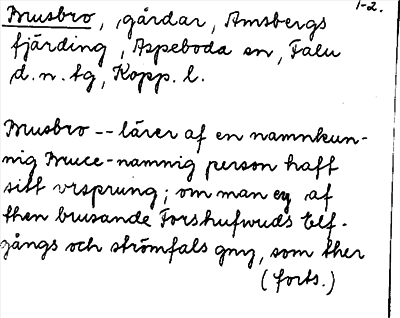 1-2.
Brusbro, gårdar, Amsbergs
fjärding, Aspeboda sn, Falu
d.n. tg, Kopp. l.
Brusbro -- lärer af en namnkun-
nig Bruce-namnig person haft
sitt vrsprung; om man ey af
then brusande Forshufwuds Elf-
gångs och strömfals gny, som ther
(forts.)